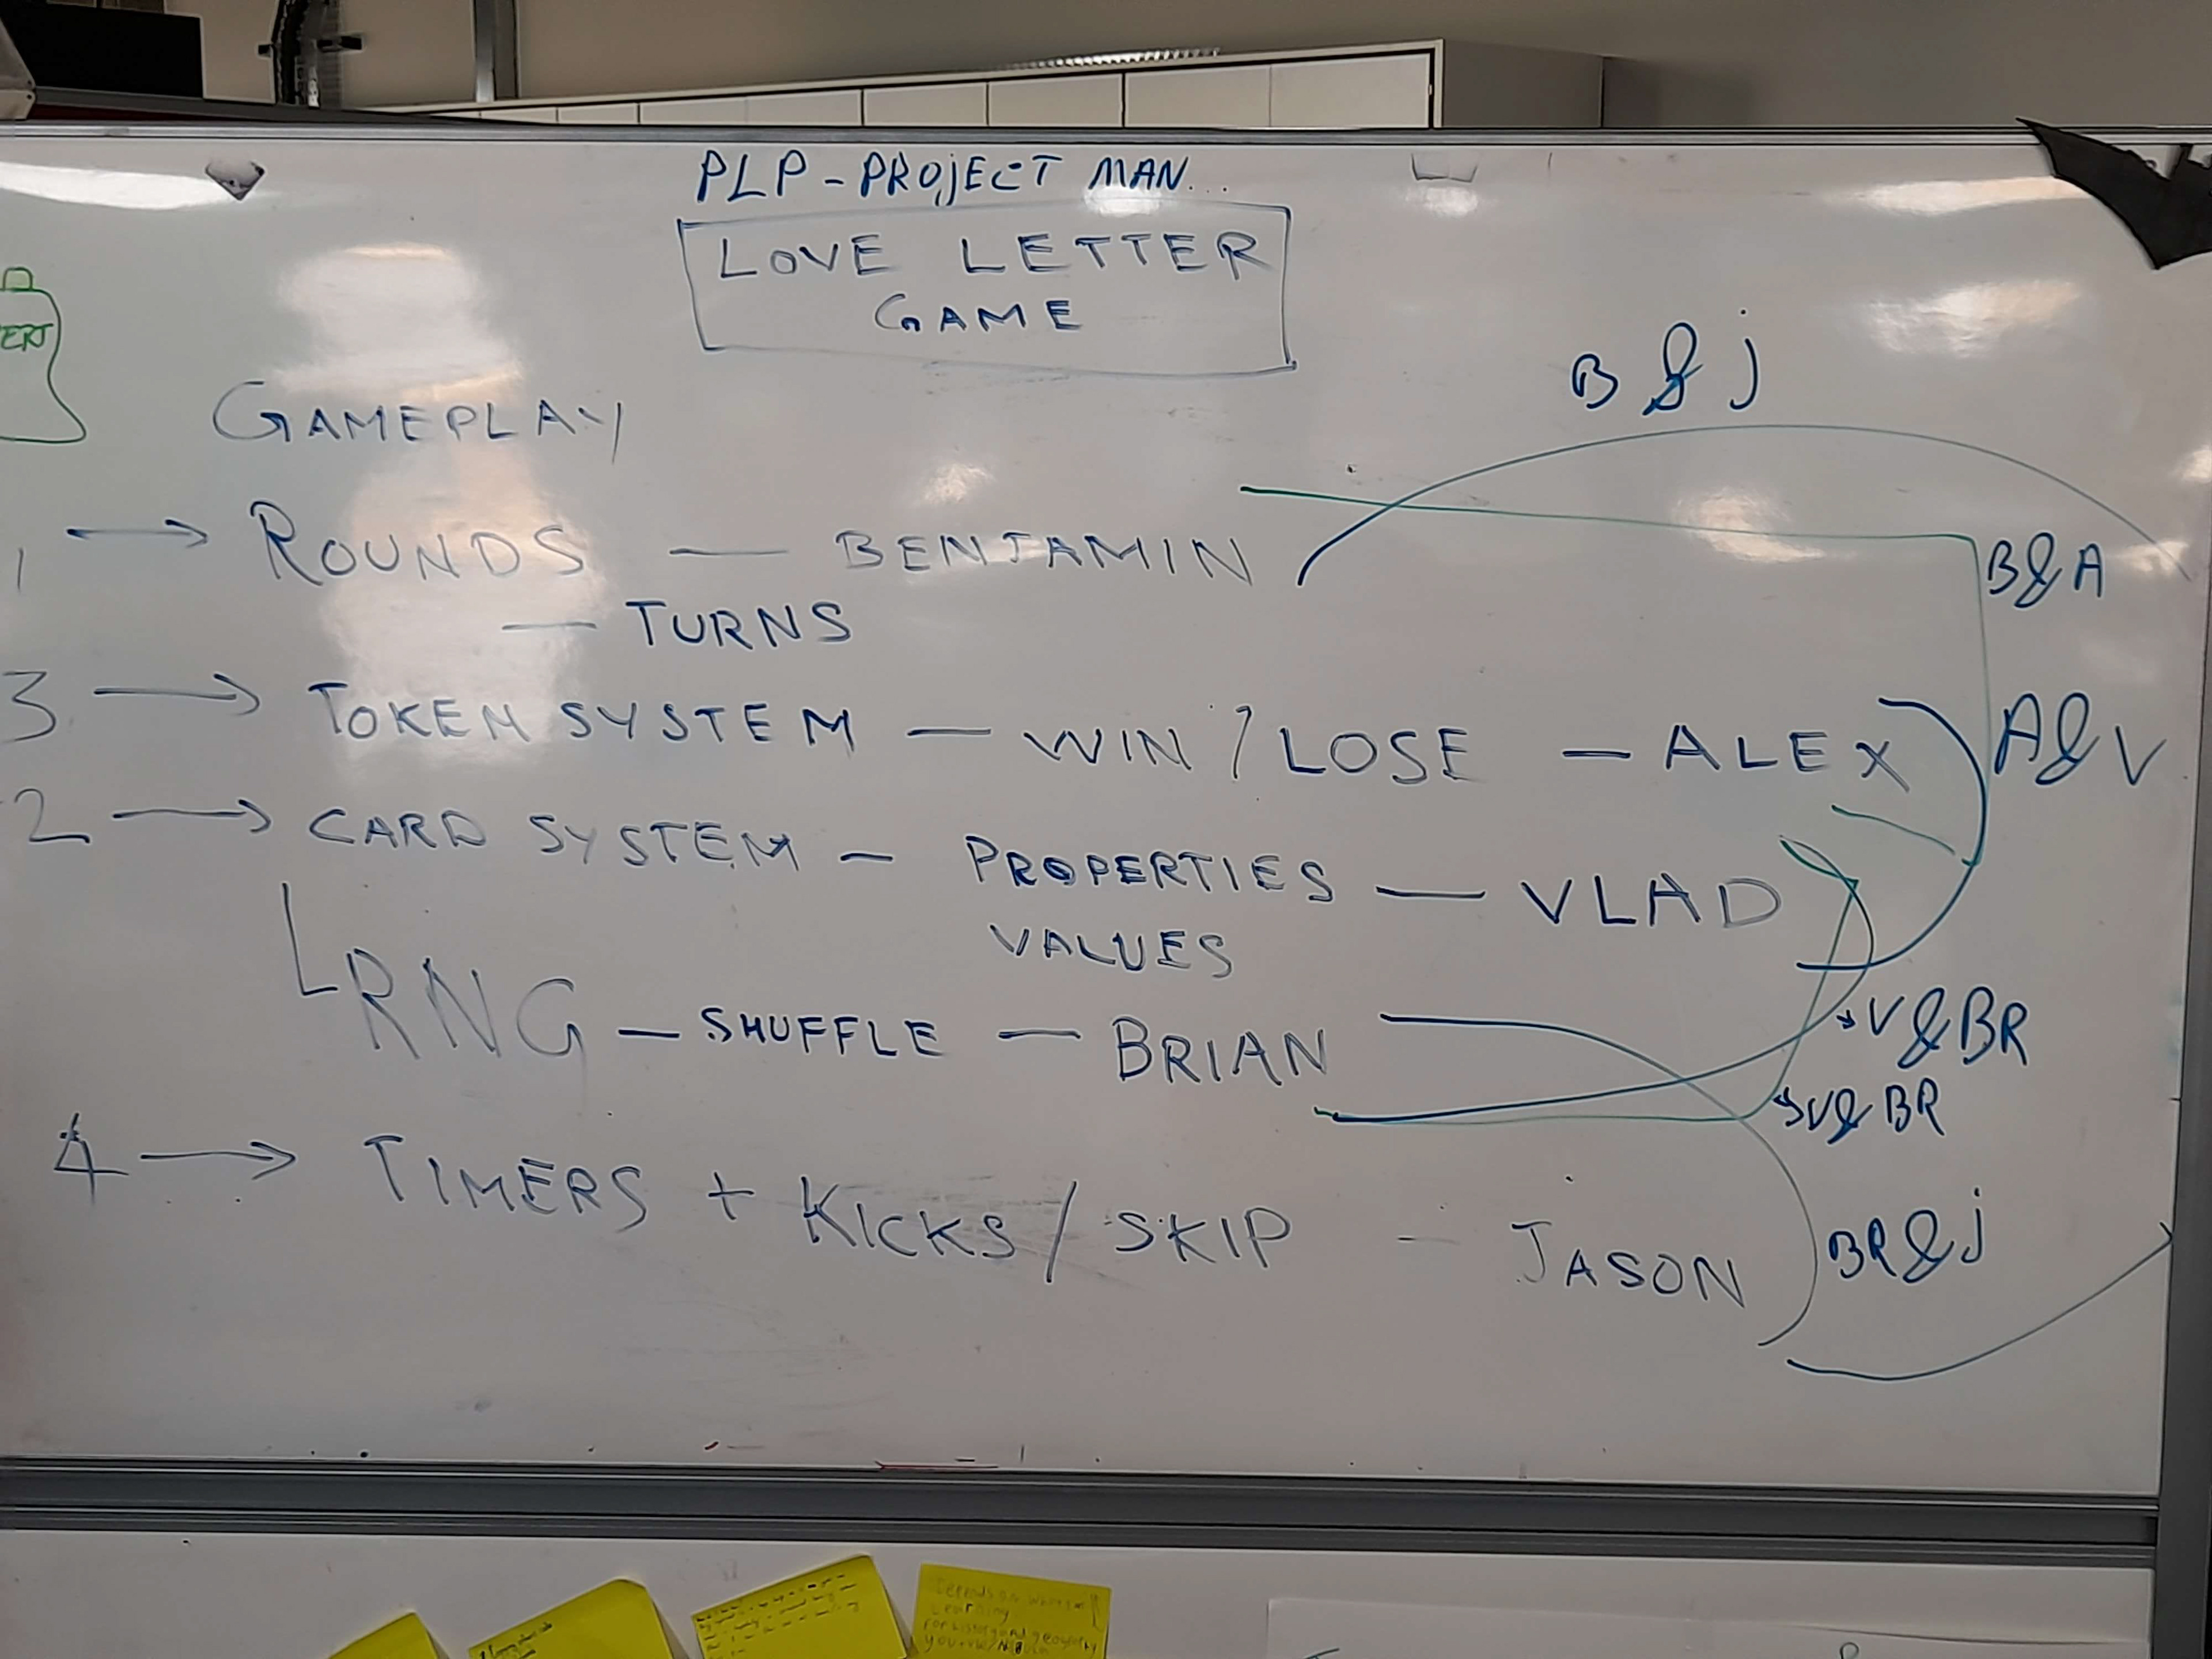 PLP - PROJECT MAN...
LOVE LETTER
GAME
ERT
B & J
GAMEPLAY
1 → ROUNDS — BENJAMIN
B&A
— TURNS
3 → TOKEN SYSTEM — WIN / LOSE — ALEX
A&V
2 → CARD SYSTEM — PROPERTIES — VLAD
VALUES
RNG — SHUFFLE — BRIAN
V&BR
V&BR
4 → TIMERS + KICKS / SKIP - JASON
BR&J
Learning
for history and geography